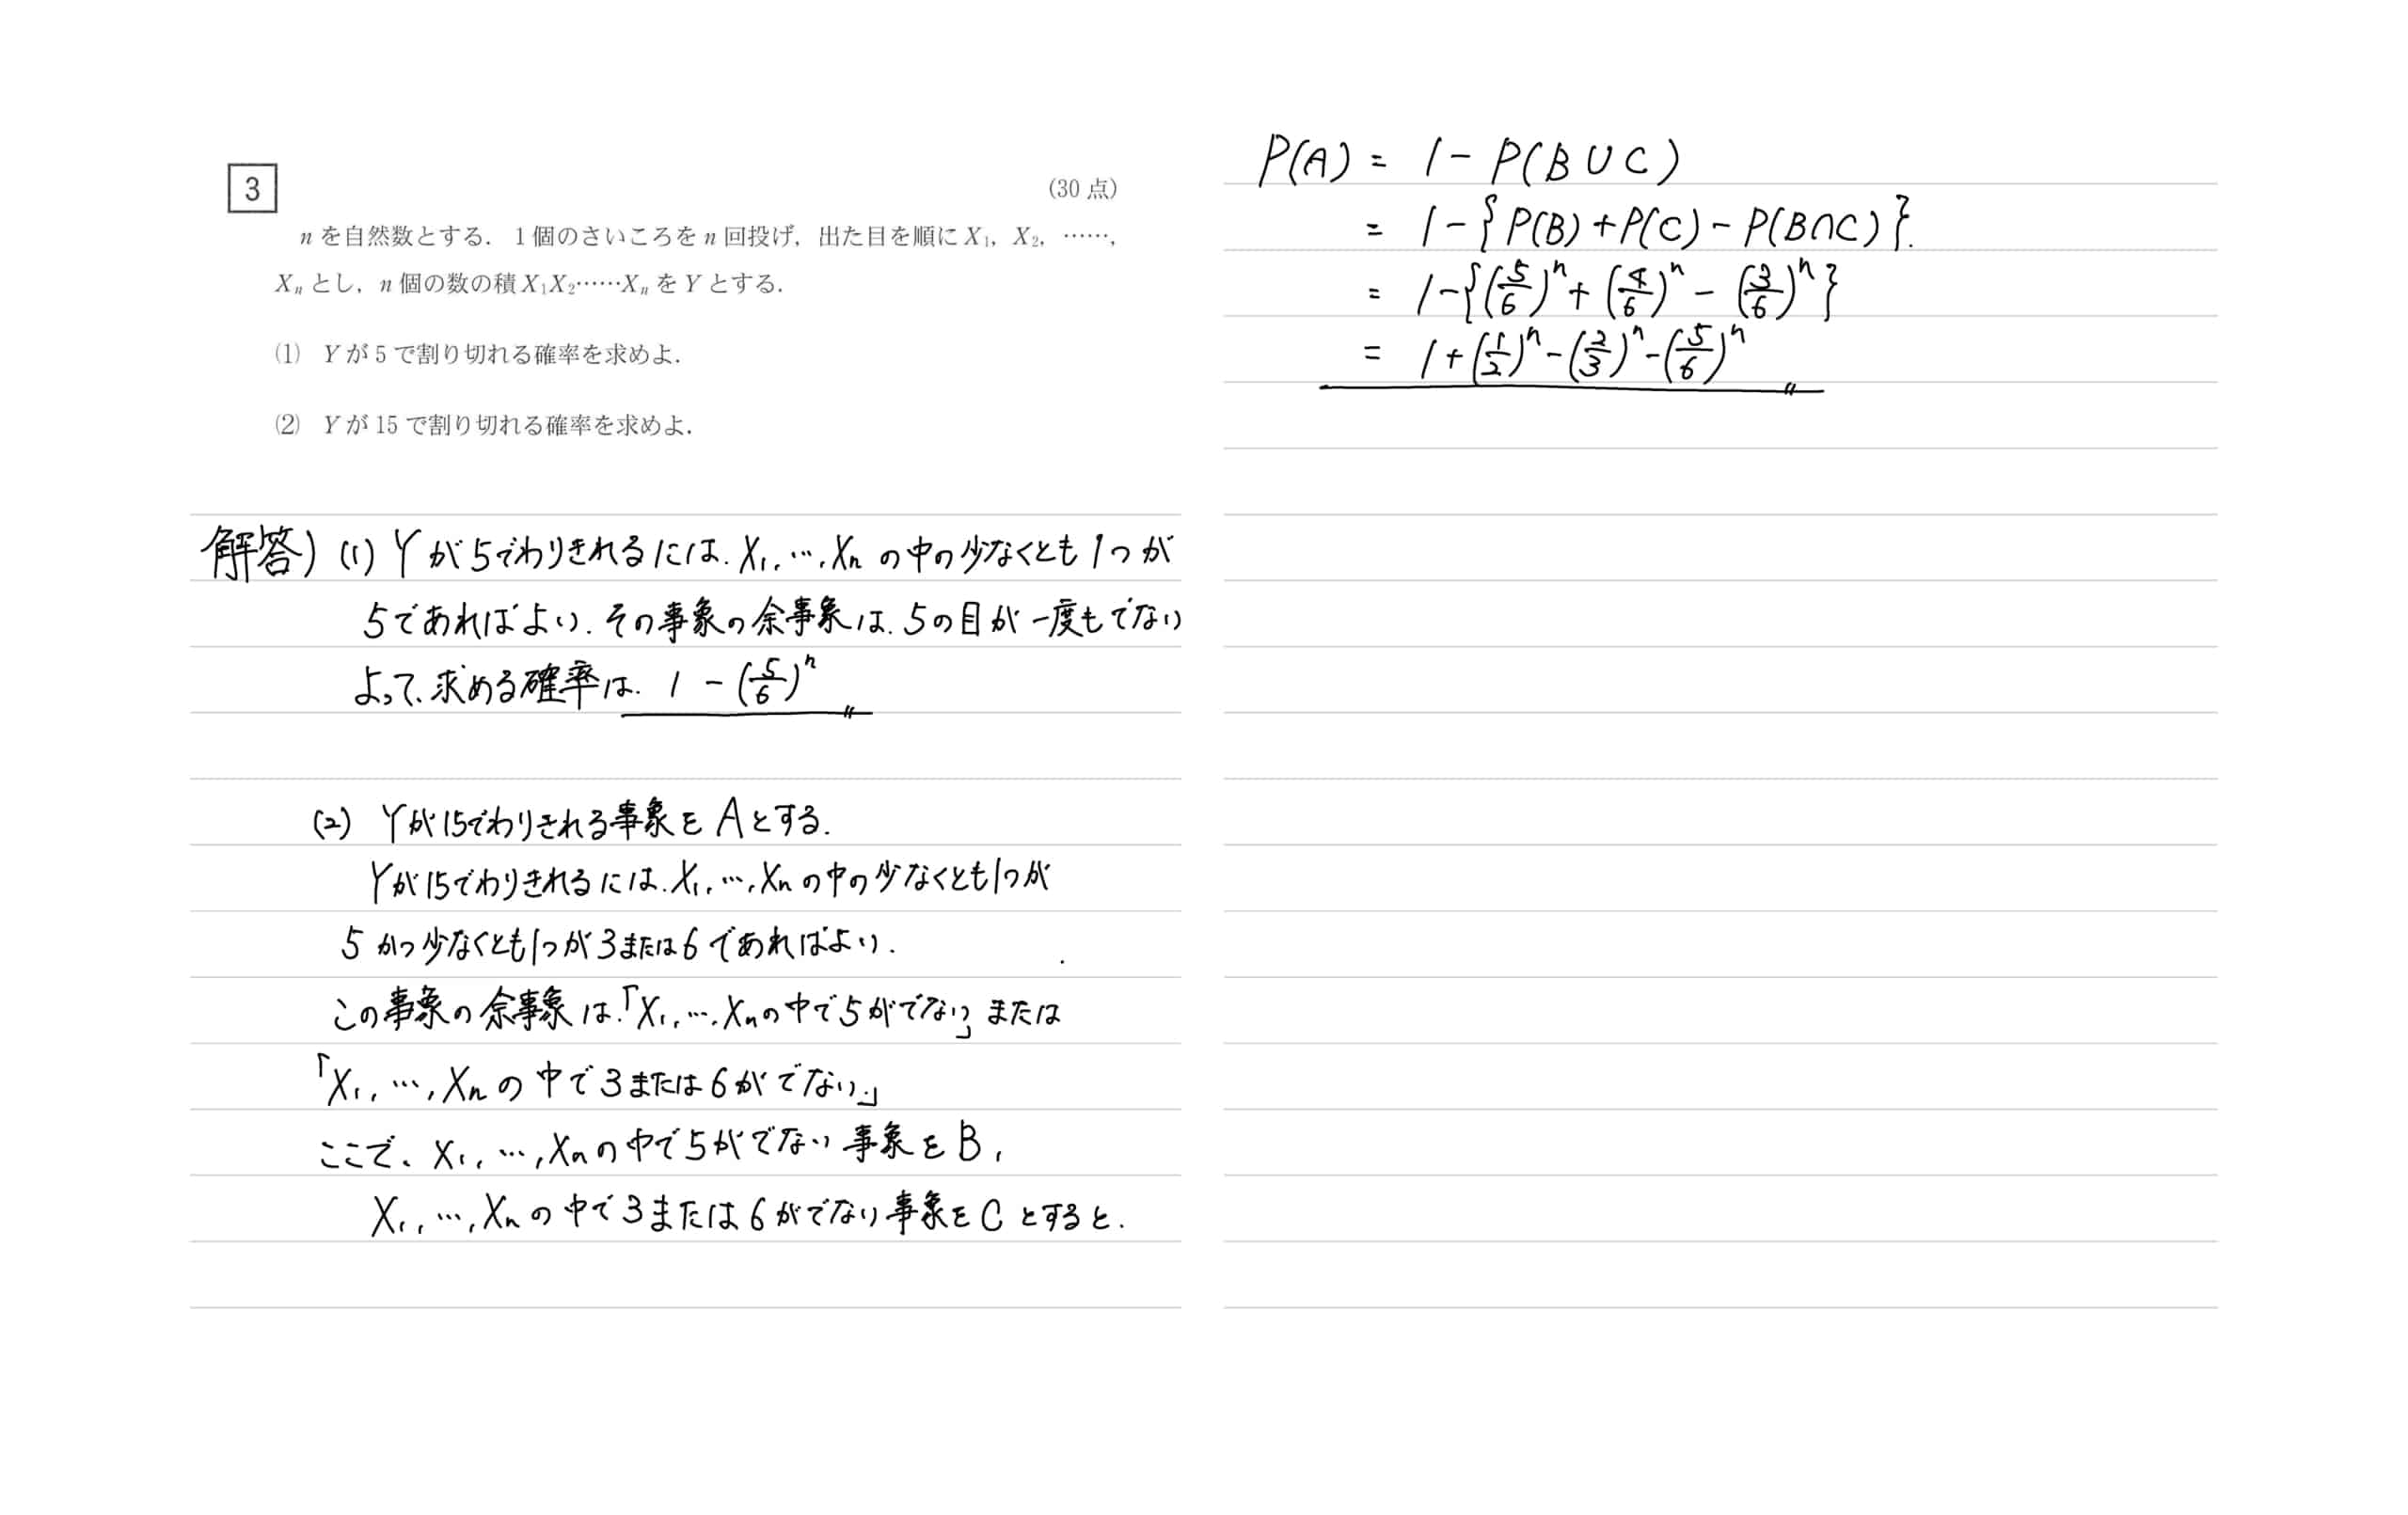 3
(30 点)
n を自然数とする. 1 個のさいころを n 回投げ, 出た目を順に X₁, X₂, ……,
Xₙ とし, n 個の数の積 X₁X₂……Xₙ を Y とする.
(1) Y が 5 で割り切れる確率を求めよ.
(2) Y が 15 で割り切れる確率を求めよ.
解答) (1) Y が 5でわりきれるには. X₁, …, Xₙ の中の少なくとも 1つ が
5であればよい. その事象の余事象は. 5の目が一度もでない
よって、求める確率は. 1 - (5/6)ⁿ
(2) Yが15でわりきれる事象を Aとする.
Yが15でわりきれるには. X₁, …, Xₙ の中の少なくとも1つが
5 かつ少なくとも1つが3または6であればよい.
この事象の余事象は.「X₁, …, Xₙの中で5がでない」または
「X₁, …, Xₙの中で3または6がでない.」
ここで、X₁, …, Xₙの中で5がでない事象をB,
X₁, …, Xₙの中で3または6がでない事象をCとすると.
P(A) = 1 - P(B∪C)
= 1 - {P(B) + P(C) - P(B∩C)}.
= 1 - {(5/6)ⁿ + (4/6)ⁿ - (3/6)ⁿ}
= 1 + (1/2)ⁿ - (2/3)ⁿ - (5/6)ⁿ